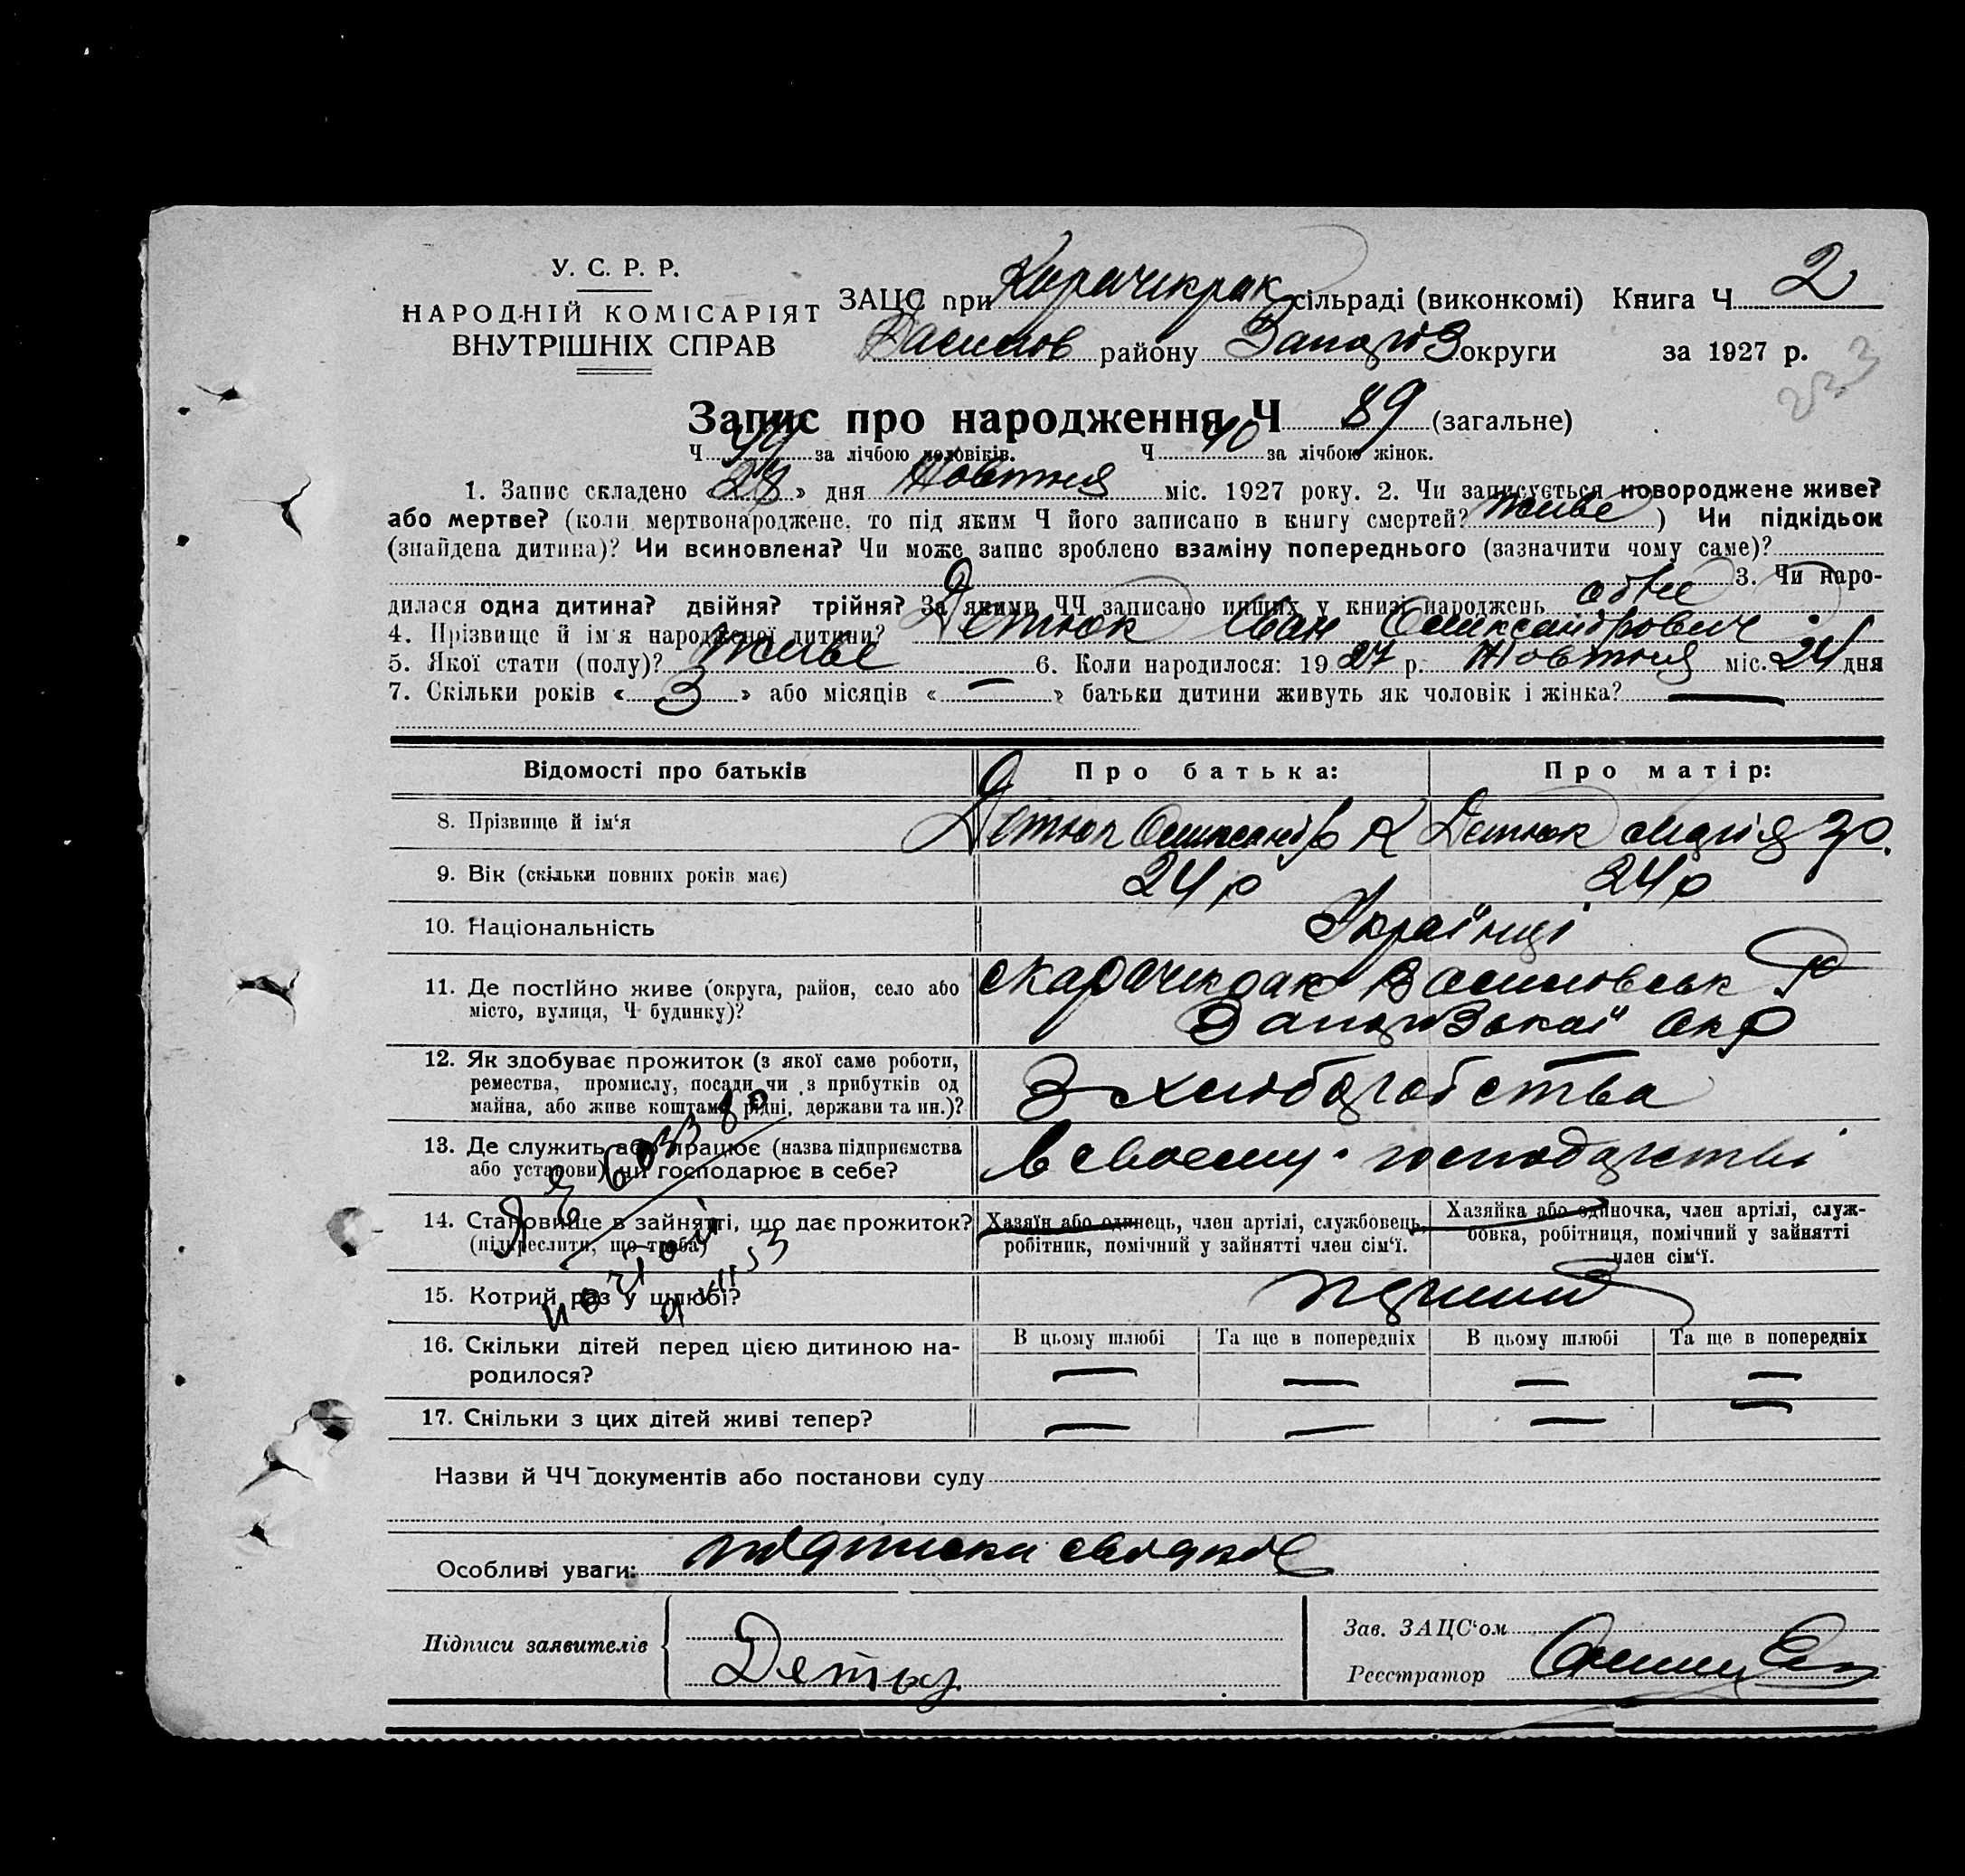 У. С. Р. Р.
НАРОДНІЙ КОМІСАРІЯТ
ВНУТРІШНІХ СПРАВ
ЗАЦС при Карачикрак сільраді (виконкомі) Книга Ч 2
Василов району Запоріз округи за 1927 р.
Запис про народження Ч 89 (загальне)
Ч за лічбою чоловіків. Ч 40 за лічбою жінок.
1. Запис складено « 28 » дня Жовтня міс. 1927 року. 2. Чи записується новороджене живе?
або мертве? (коли мертвонароджене, то під яким Ч його записано в книгу смертей? живе ) Чи підкідьок
(знайдена дитина)? Чи всиновлена? Чи може запис зроблено взаміну попереднього (зазначити чому саме)?
3. Чи наро-
дилася одна дитина? двійня? трійня? За якими ЧЧ записано инших у книзі народжень одне
4. Прізвище й ім'я народженої дитини? Детюк Іван Олександрович
5. Якої стати (полу)? живе 6. Коли народилося: 19 27 р. Жовтня міс. 24 дня
7. Скільки років « 3 » або місяців « — » батьки дитини живуть як чоловік і жінка? —
Відомості про батьків Про батька: Про матір:
8. Прізвище й ім'я Детюк Олександр К Детюк Марія
9. Вік (скільки повних років має) 24 р 24 р
10. Національність Українці
11. Де постійно живе (округа, район, село або
місто, вулиця, Ч будинку)?
с Карачикрак Василовськ Р
Запорізької окр
12. Як здобуває прожиток (з якої саме роботи,
ремества, промислу, посади чи з прибутків од
майна, або живе коштами рідні, держави та ин.)?
З хліборобства
13. Де служить або працює (назва підприємства
або установи) чи господарює в себе?
в своєму господарстві
14. Становище в зайнятті, що дає прожиток?
(підкреслити, що треба)
Хазяїн або одинець, член артілі, службовець,
робітник, помічний у зайнятті член сім'ї.
Хазяйка або одиночка, член артілі, служ-
бовка, робітниця, помічний у зайнятті
член сім'ї.
15. Котрий раз у шлюбі?
16. Скільки дітей перед цією дитиною на-
родилося?
В цьому шлюбі Та ще в попередніх В цьому шлюбі Та ще в попередніх
— — — —
17. Скільки з цих дітей живі тепер? — — — —
Назви й ЧЧ документів або постанови суду
Особливі уваги:
Підписи заявителів
Детюк
Зав. ЗАЦС'ом
Реєстратор